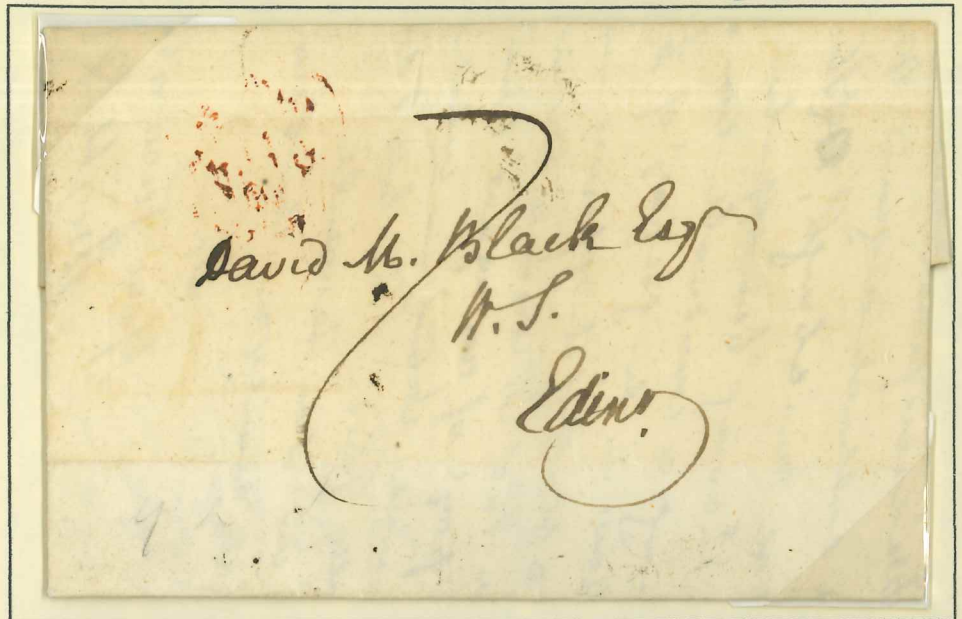 7
David M. Black Esqr
W. S.
Edinr.